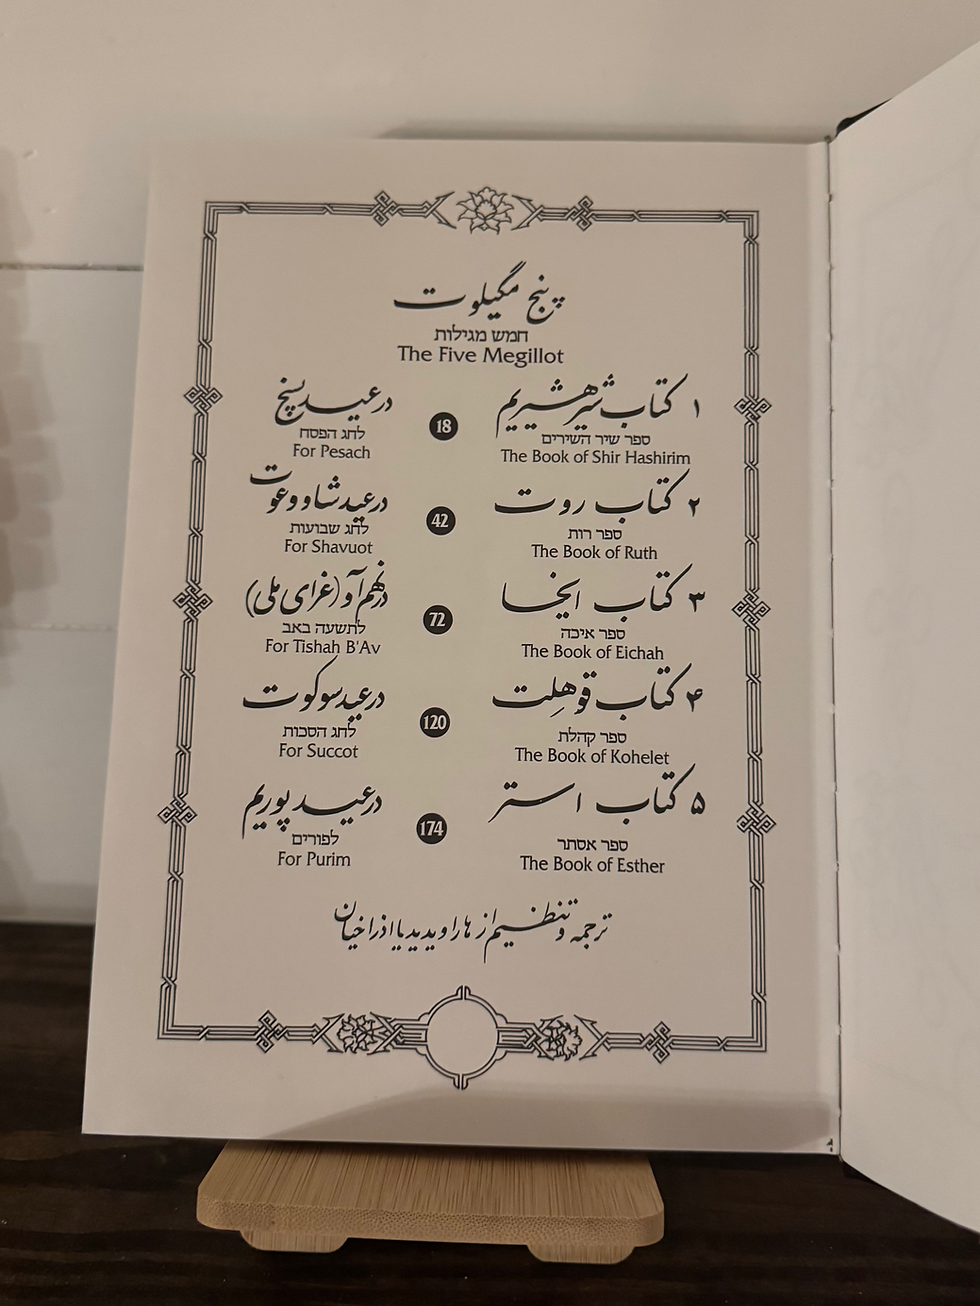 پنج مگیلوت
חמש מגילות
The Five Megillot
۱ کتاب شیر هشیریم
ספר שיר השירים
The Book of Shir Hashirim
18
در عید پسح
לחג הפסח
For Pesach
۲ کتاب روت
ספר רות
The Book of Ruth
42
در عید شاووعوت
לחג שבועות
For Shavuot
۳ کتاب ایخا
ספר איכה
The Book of Eichah
72
در نهم آو (عزای ملی)
לתשעה באב
For Tishah B'Av
۴ کتاب قوهلت
ספר קהלת
The Book of Kohelet
120
در عید سوکوت
לחג הסכות
For Succot
۵ کتاب استر
ספר אסתר
The Book of Esther
174
در عید پوریم
לפורים
For Purim
ترجمه و تنظیم از هاراو یدیدیا اذراخیان